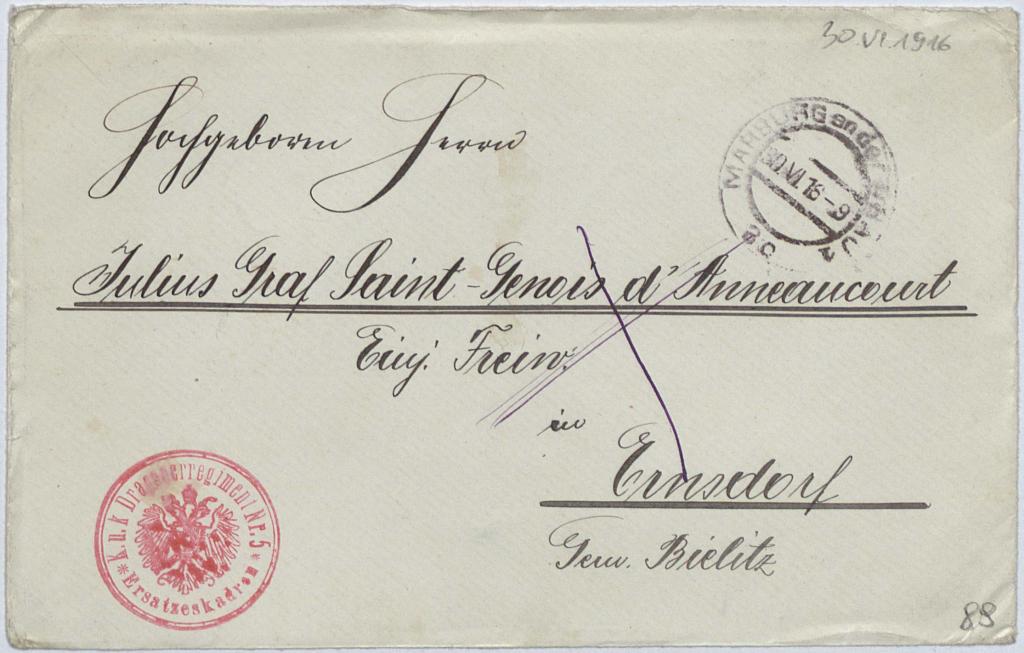 30.VI.1916
Hochgeboren Herrn
MARBURG an der DRAU
30.VI.16-9
8c
Julius Graf Saint-Genois d'Anneaucourt
Einj. Freiw.
in
Ernsdorf
Gem. Bielitz
k.u.k Dragonerregiment Nr. 5
* Ersatzeskadron *
88